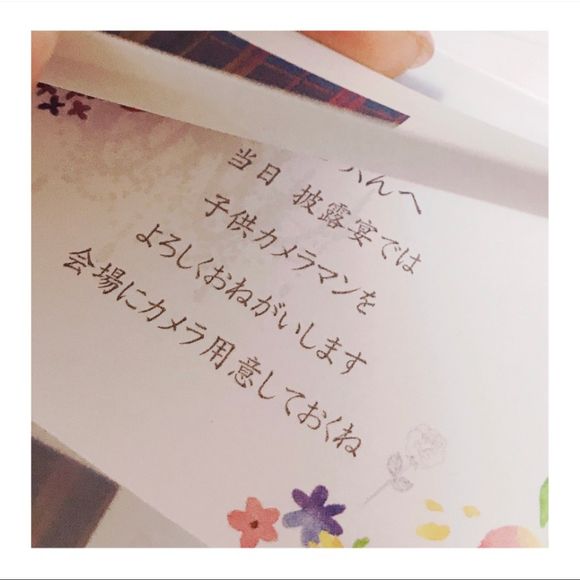 へ
当日 披露宴では
子供カメラマンを
よろしくおねがいします
会場にカメラ用意しておくね